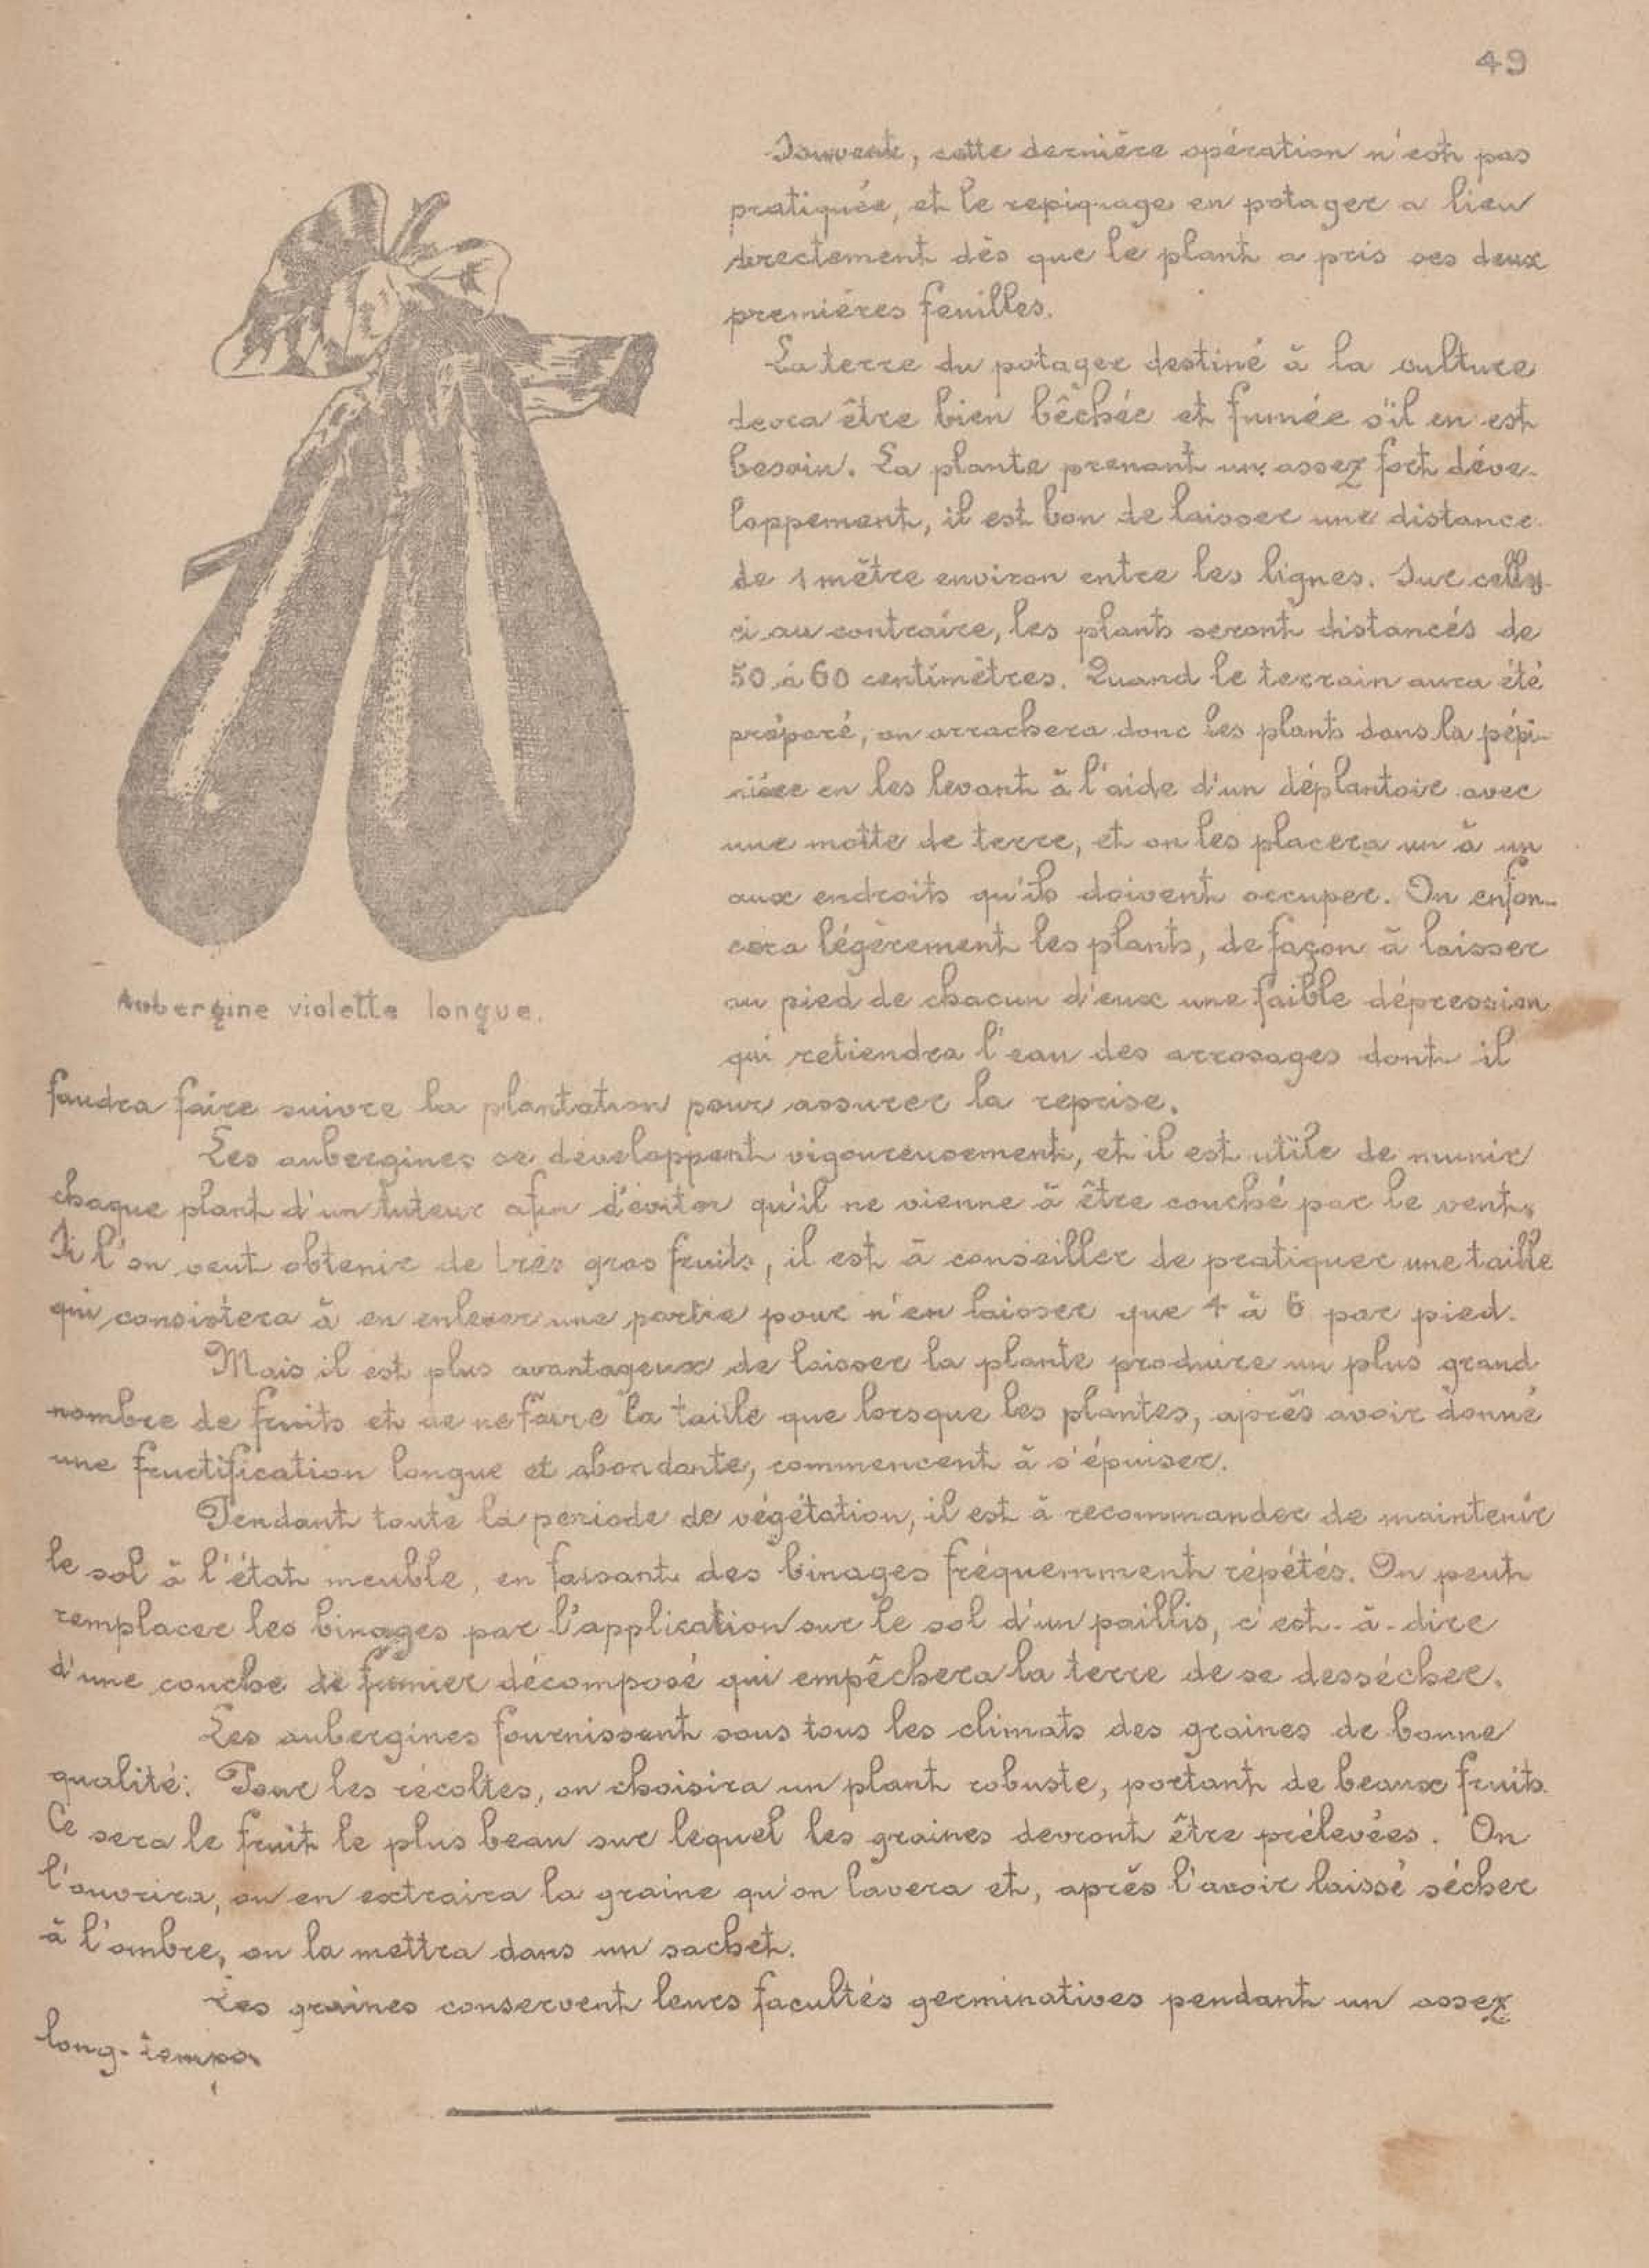 49
Souvent, cette dernière opération n'est pas
pratiquée, et le repiquage en potager a lieu
directement dès que le plant a pris ses deux
premières feuilles.
La terre du potager destiné à la culture
devra être bien bêchée et fumée s'il en est
besoin. La plante prenant un assez fort déve-
loppement, il est bon de laisser une distance
de 1 mètre environ entre les lignes. Sur celles-
ci au contraire, les plants seront distancés de
50 à 60 centimètres. Quand le terrain aura été
préparé, on arrachera donc les plants dans la pépi-
nière en les levant à l'aide d'un déplantoir avec
une motte de terre, et on les placera un à un
aux endroits qu'ils doivent occuper. On enfon-
cera légèrement les plants, de façon à laisser
au pied de chacun d'eux une faible dépression
qui retiendra l'eau des arrosages dont il
Aubergine violette longue.
faudra faire suivre la plantation pour assurer la reprise.
Les aubergines se développent vigoureusement, et il est utile de munir
chaque plant d'un tuteur afin d'éviter qu'il ne vienne à être couché par le vent.
Si l'on veut obtenir de très gros fruits, il est à conseiller de pratiquer une taille
qui consistera à en enlever une partie pour n'en laisser que 4 à 6 par pied.
Mais il est plus avantageux de laisser la plante produire un plus grand
nombre de fruits et de ne faire la taille que lorsque les plantes, après avoir donné
une fructification longue et abondante, commencent à s'épuiser.
Pendant toute la période de végétation, il est à recommander de maintenir
le sol à l'état meuble, en faisant des binages fréquemment répétés. On peut
remplacer les binages par l'application sur le sol d'un paillis, c'est-à-dire
d'une couche de fumier décomposé qui empêchera la terre de se dessécher.
Les aubergines fournissent sous tous les climats des graines de bonne
qualité. Pour les récoltes, on choisira un plant robuste, portant de beaux fruits.
Ce sera le fruit le plus beau sur lequel les graines devront être prélevées. On
l'ouvrira, on en extraira la graine qu'on lavera et, après l'avoir laissé sécher
à l'ombre, on la mettra dans un sachet.
Les graines conservent leurs facultés germinatives pendant un assez
long-temps.